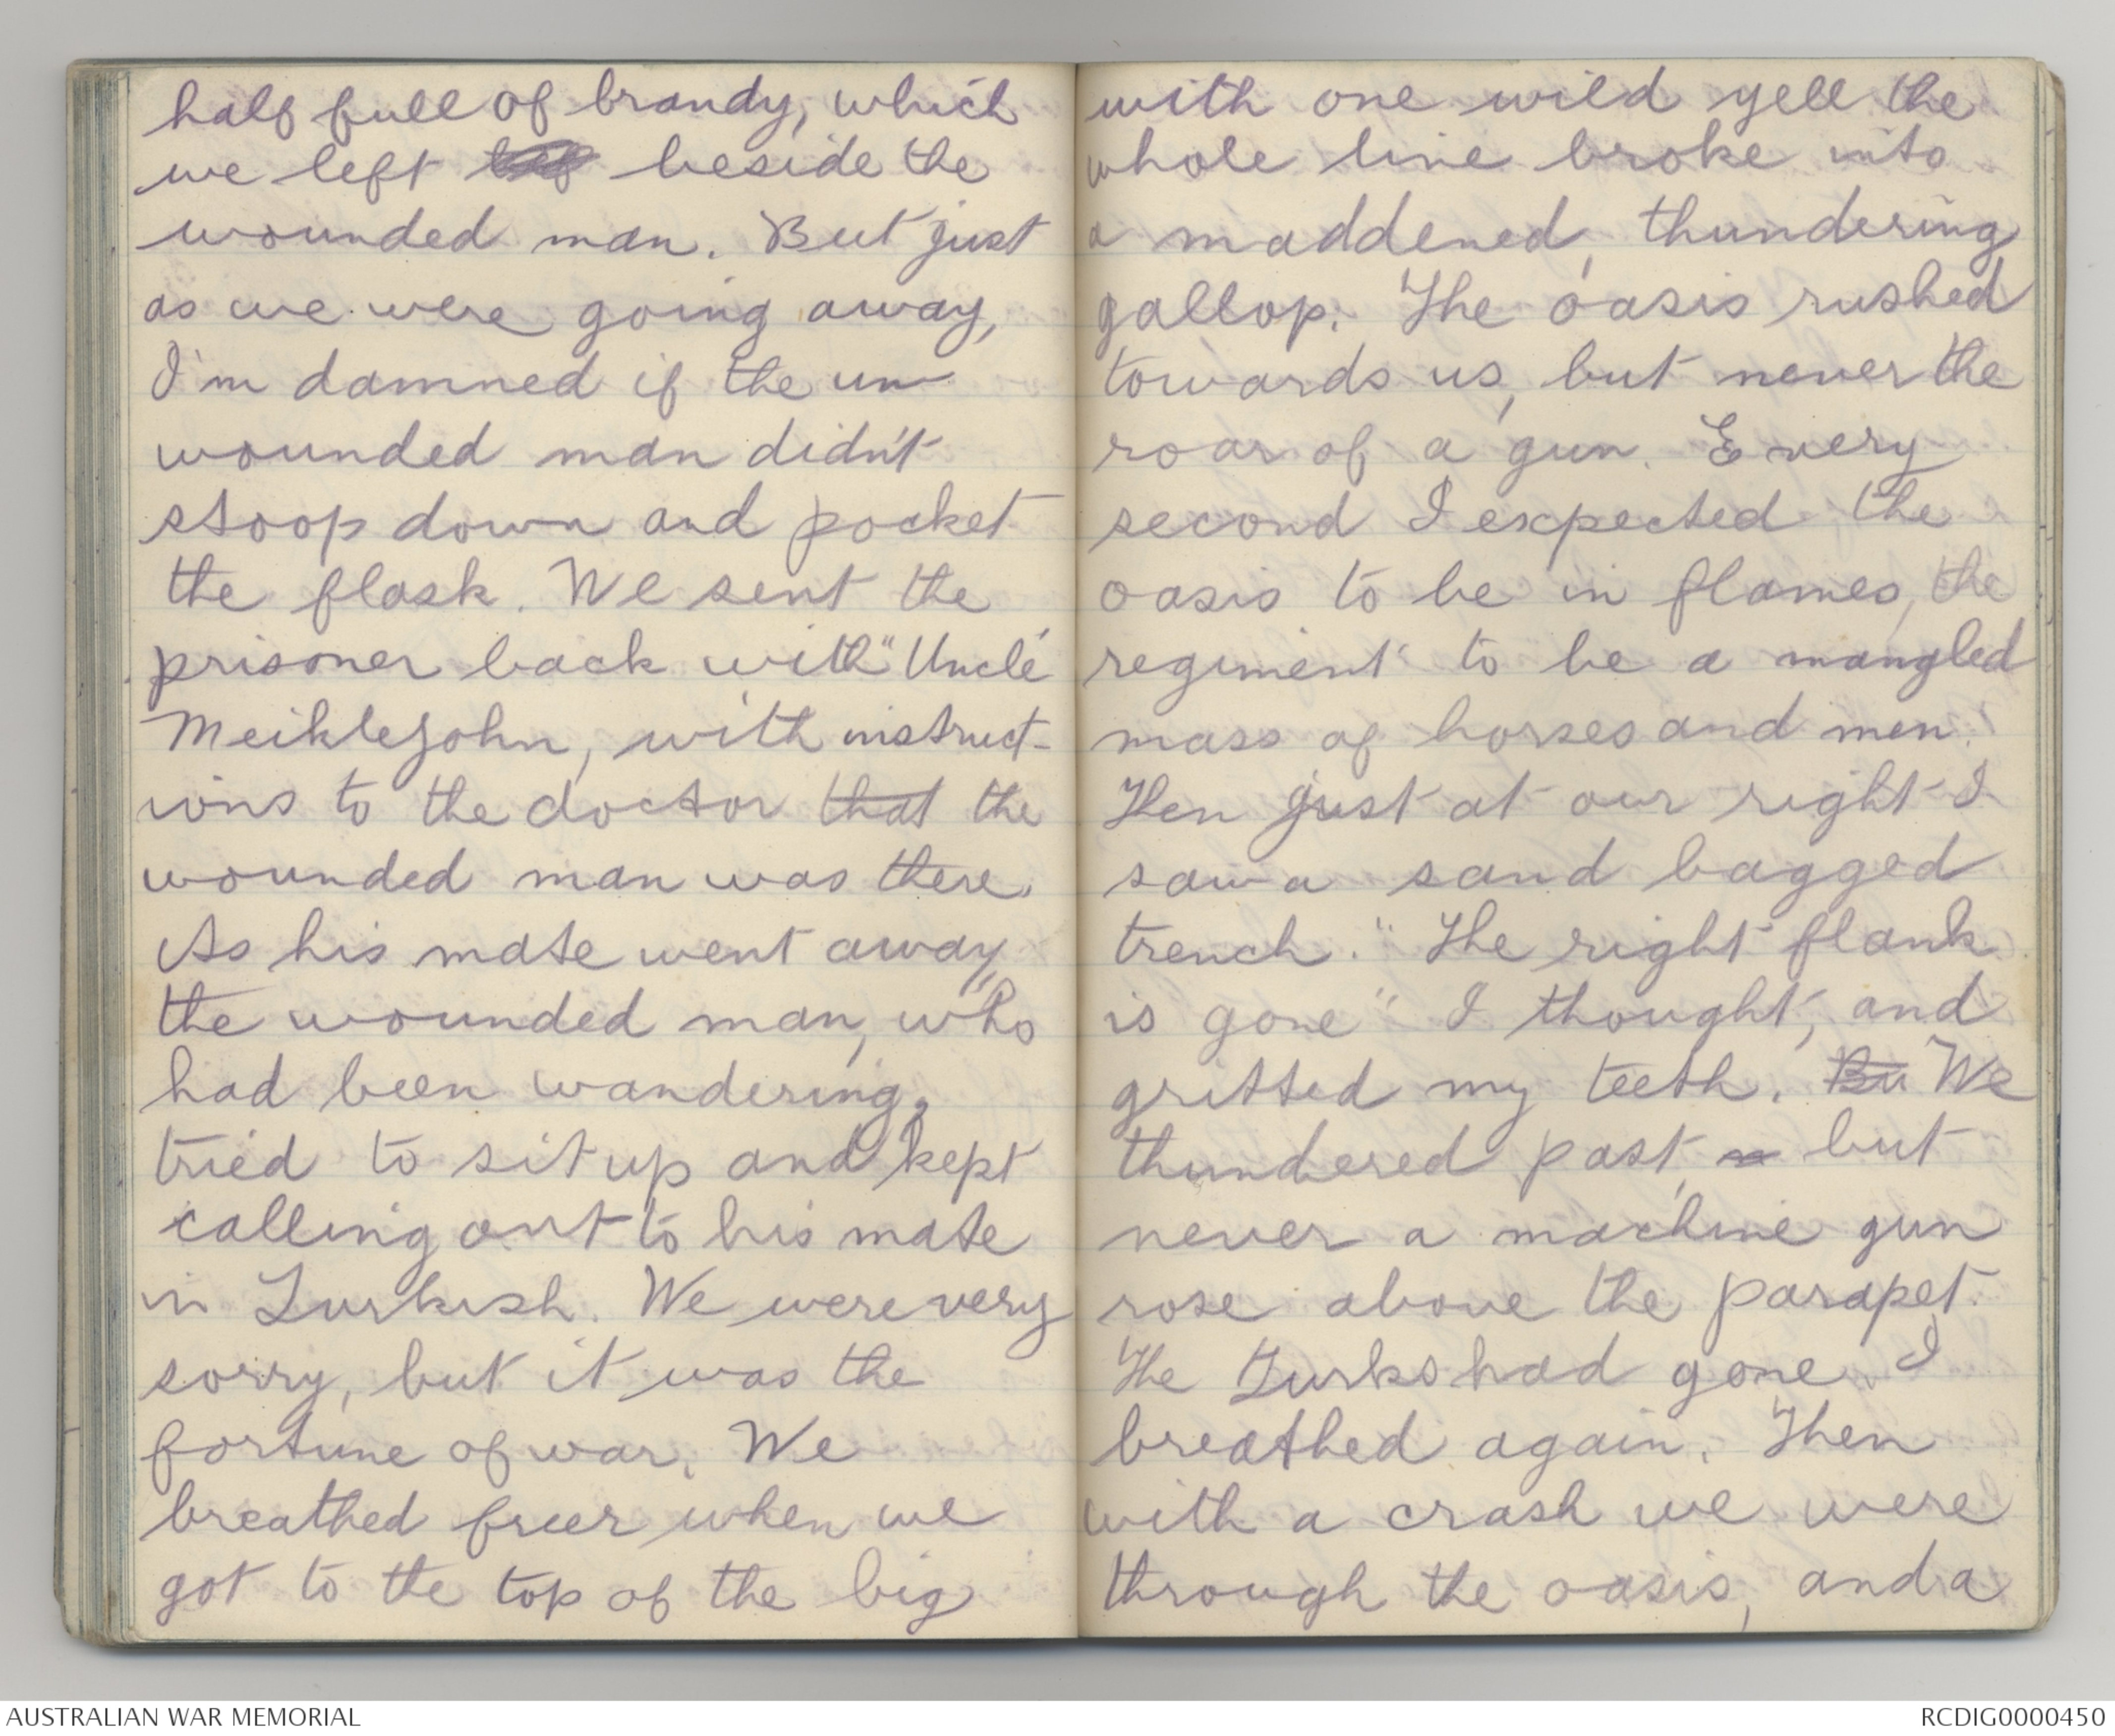 half full of brandy, which
we left beside the
wounded man. But just
as we were going away,
I'm damned if the un-
wounded man didn't
stoop down and pocket
the flask. We sent the
prisoner back with "Uncle"
Meiklejohn, with instruct-
ions to the doctor that the
wounded man was there.
As his mate went away
the wounded man, who
had been wandering,
tried to sit up and kept
calling out to his mate
in Turkish. We were very
sorry, but it was the
fortune of war. We
breathed freer when we
got to the top of the big
with one wild yell the
whole line broke into
a maddened, thundering
gallop. The oasis rushed
towards us, but never the
roar of a gun. Every
second I expected the
oasis to be in flames, the
regiment to be a mangled
mass of horses and men.
Then just at our right I
saw a sand bagged
trench. "The right flank
is gone" I thought, and
gritted my teeth. Bu We
thundered past, but
never a machine gun
rose above the parapet.
The Turks had gone. I
breathed again. Then
with a crash we were
through the oasis, and a
AUSTRALIAN WAR MEMORIAL
RCDIG0000450